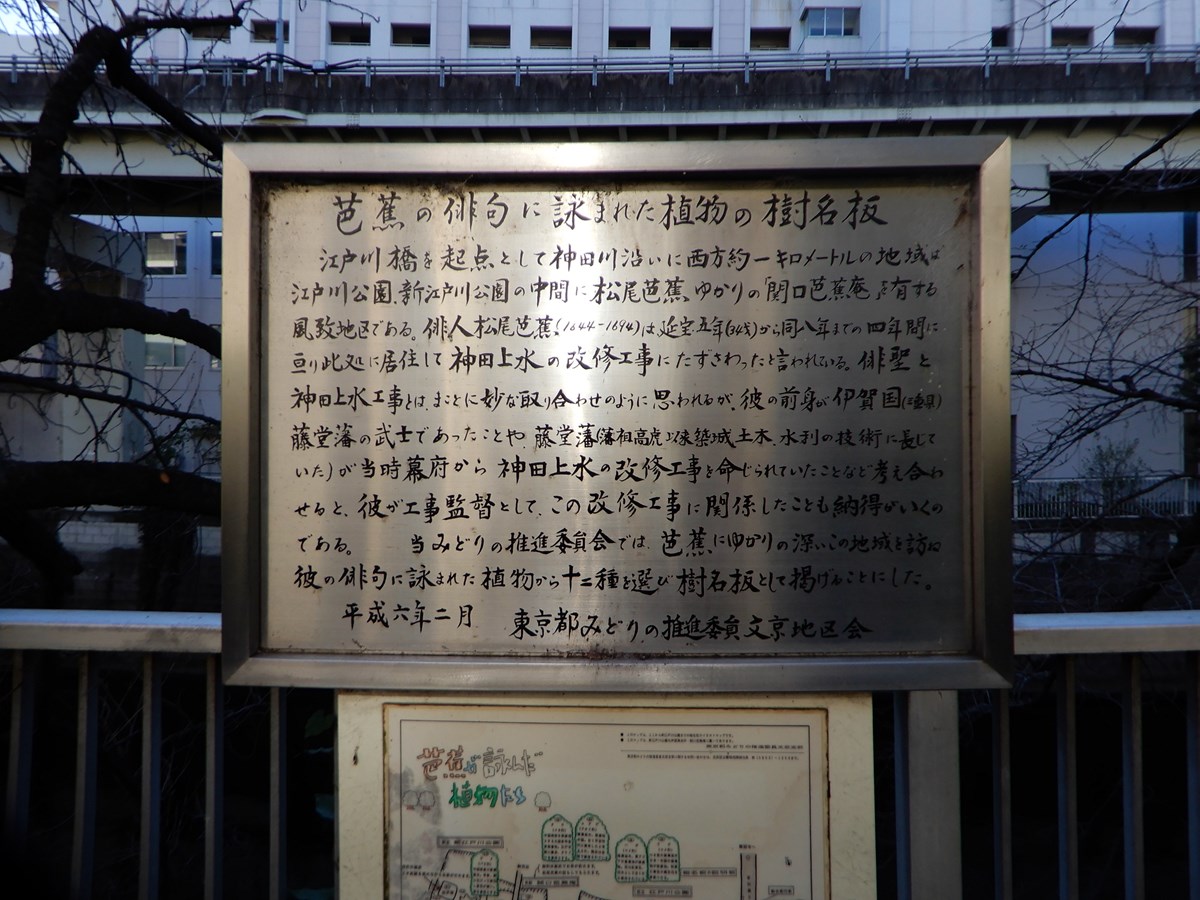 芭蕉の俳句に詠まれた植物の樹名板
江戸川橋を起点として神田川沿いに西方約一キロメートルの地域は
江戸川公園、新江戸川公園の中間に松尾芭蕉、ゆかりの「関口芭蕉庵」を有する
風致地区である。俳人松尾芭蕉(1644-1694)は、延宝五年(34才)から同八年までの四年間に
亘り此処に居住して神田上水の改修工事にたずさわったと言われている。俳聖と
神田上水工事とは、まことに妙な取り合わせのように思われるが、彼の前身が伊賀国(三重県)
藤堂藩の武士であったことや、藤堂藩(藩祖高虎以来築城土木、水利の技術に長じて
いた)が当時幕府から神田上水の改修工事を命じられていたことなど考え合わ
せると、彼が工事監督として、この改修工事に関係したことも納得がいくの
である。 当みどりの推進委員会では、芭蕉にゆかりの深いこの地域を訪ね
彼の俳句に詠まれた植物から十二種を選び樹名板として掲げることにした。
平成六年二月 東京都みどりの推進委員文京地区会
芭蕉が詠んだ
植物たち